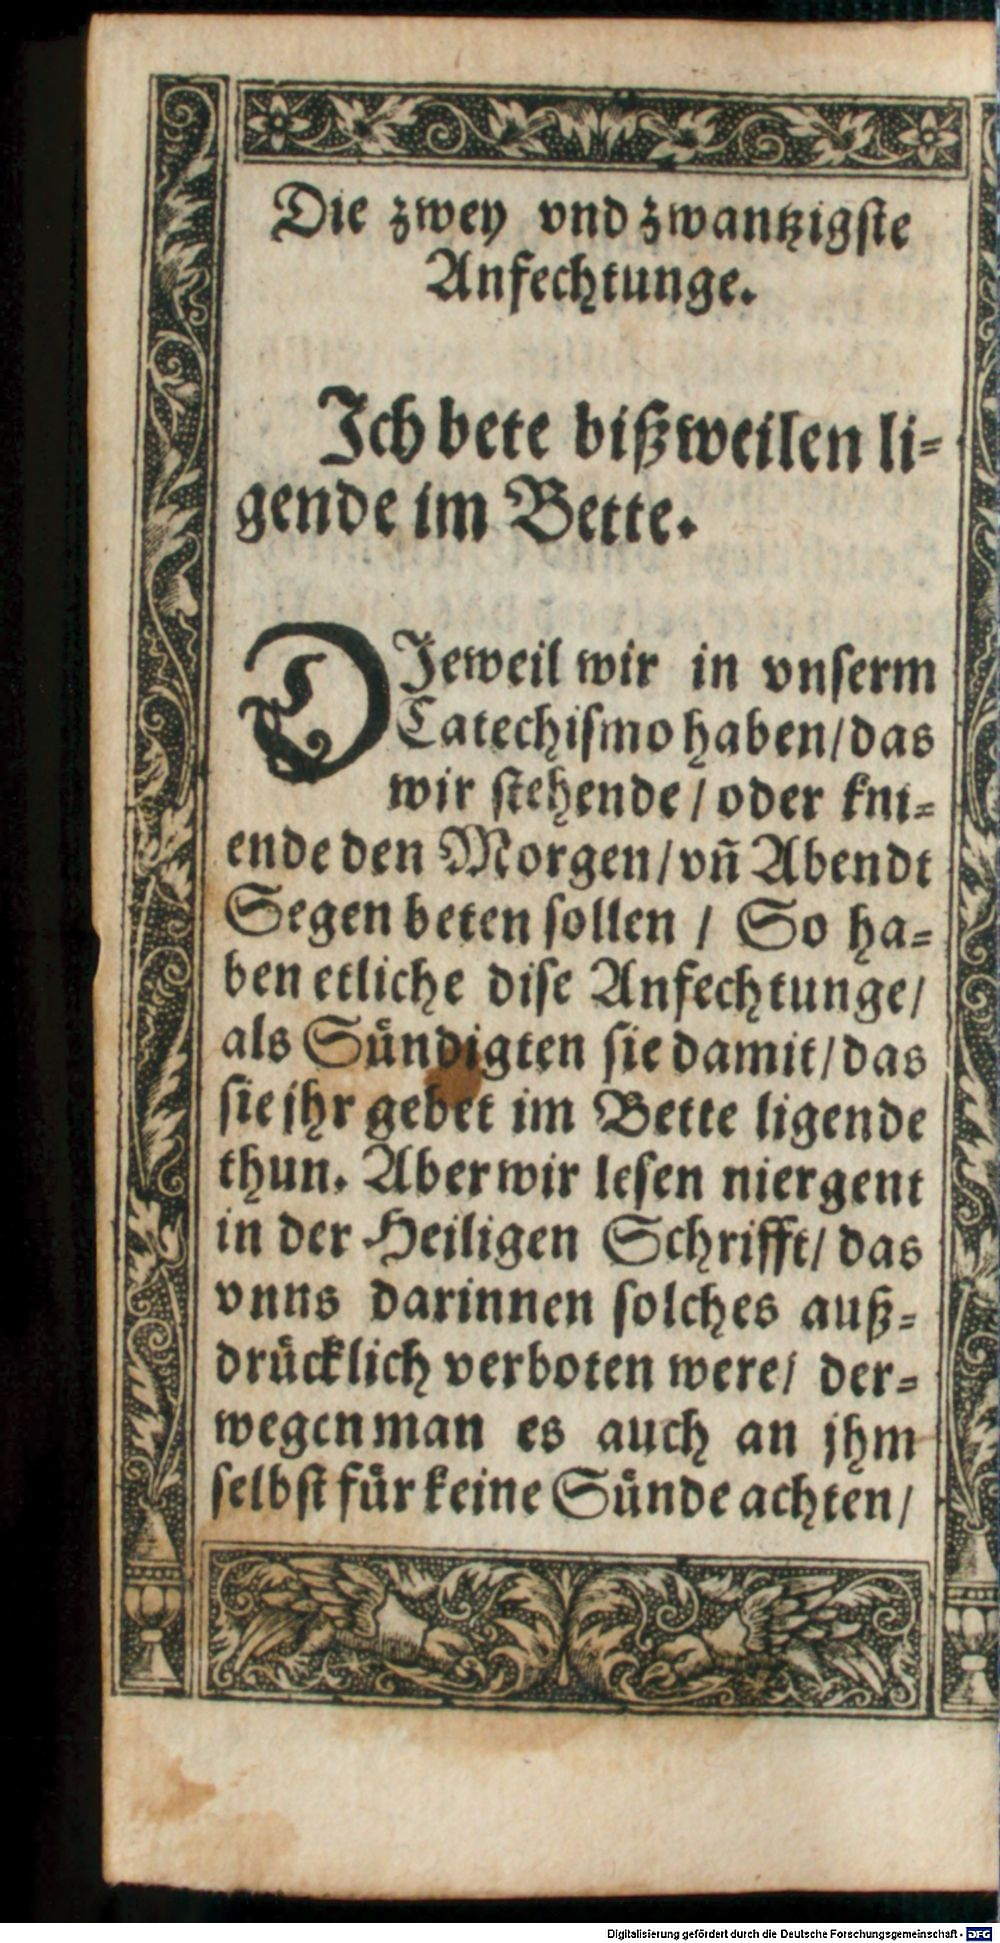 Die zwey vnd zwantzigste
Anfechtunge.
Ich bete bißweilen li-
gende im Bette.
DJeweil wir in vnserm
Catechismo haben/das
wir stehende/oder kni-
ende den Morgen/vñ Abendt
Segen beten sollen / So ha-
ben etliche dise Anfechtunge/
als Sündigten sie damit/das
sie jhr gebet im Bette ligende
thun. Aber wir lesen niergent
in der Heiligen Schrifft/ das
vnns darinnen solches auß-
drücklich verboten were/ der-
wegen man es auch an jhm
selbst für keine Sünde achten/
Digitalisierung gefördert durch die Deutsche Forschungsgemeinschaft - DFG